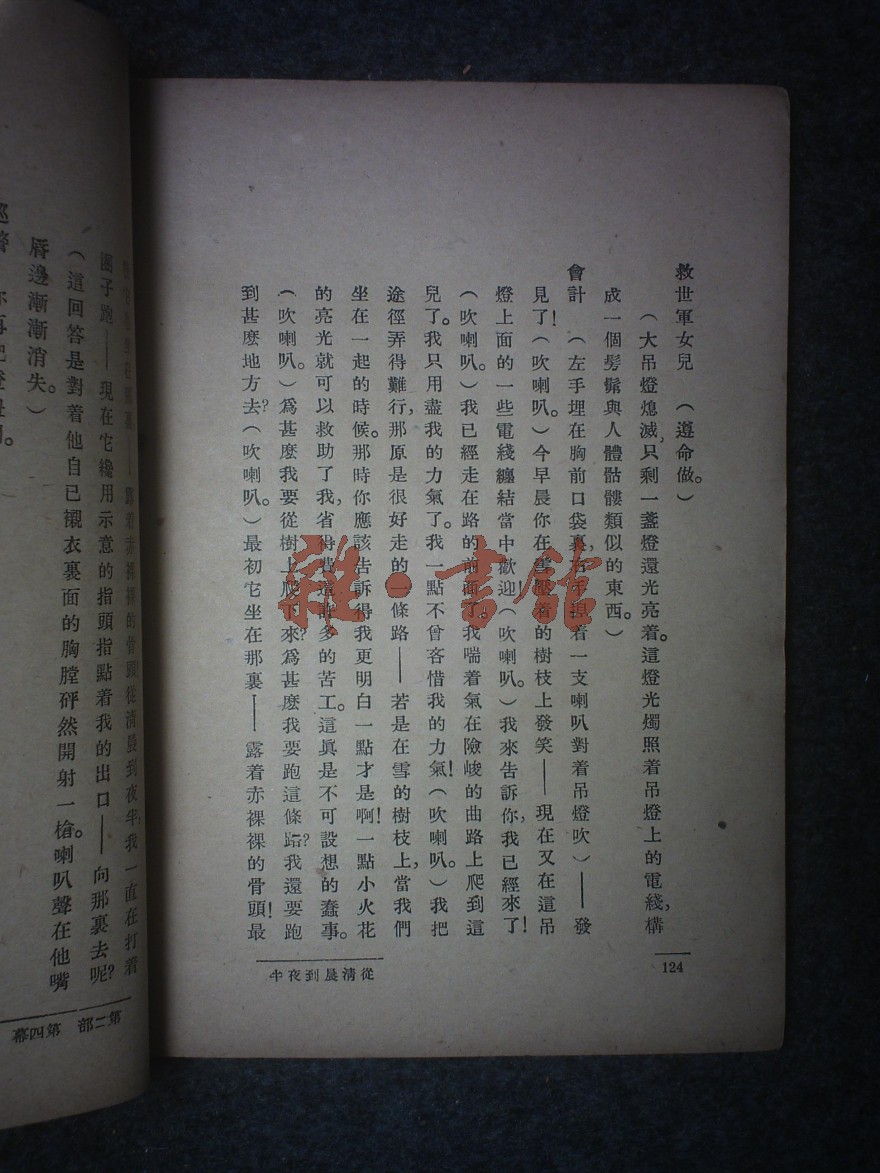 救世軍女兒　(遵命做。)
(大吊燈熄滅,只剩一盞燈還光亮着。這燈光燭照着吊燈上的電綫,構
成一個髣髴與人體骷髏類似的東西。)
會計　(左手埋在胸前口袋裏,右手揑着一支喇叭對着吊燈吹)——發
見了!(吹喇叭。)今早晨你在雪壓着的樹枝上發笑——現在又在這吊
燈上面的一些電綫纏結當中歡迎!(吹喇叭。)我來告訴你,我已經來了!
(吹喇叭。)我已經走在路的前面了。我喘着氣在險峻的曲路上爬到這
兒了。我只用盡我的力氣了。我一點不曾吝惜我的力氣!(吹喇叭。)我把
途徑弄得難行,那原是很好走的一條路——若是在雪的樹枝上,當我們
坐在一起的時候。那時你應該告訴得我更明白一點才是啊!一點小火花
的亮光就可以救助了我,省得費這許多的苦工。這眞是不可設想的蠢事。
(吹喇叭。)爲甚麽我要從樹上爬下來?爲甚麽我要跑這條路?我還要跑
到甚麽地方去?(吹喇叭。)最初它坐在那裏——露着赤裸裸的骨頭!最
124
從清晨到夜半
露着赤裸裸的骨頭!從清晨到夜半,我一直在打着
圈子跑——現在它纔用示意的指頭指點着我的出口——向那裏去呢?
(這回答是對着他自已襯衣裏面的胸膛砰然開射一槍。喇叭聲在他嘴
唇邊漸漸消失。)
巡警
第二部　第四幕